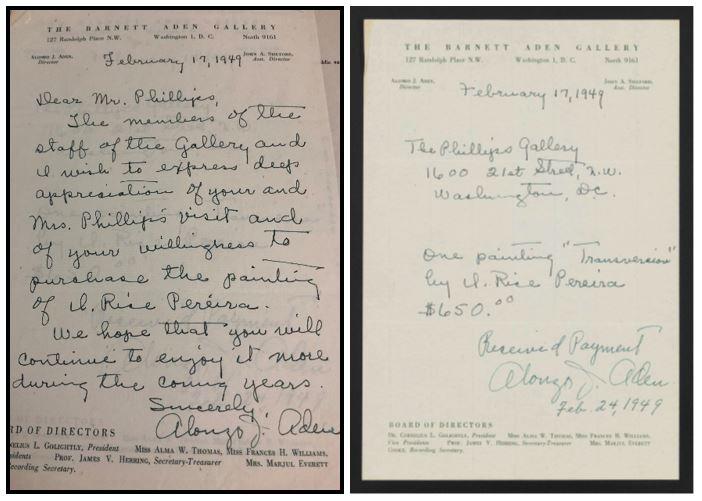 THE BARNETT ADEN GALLERY
127 Randolph Place N.W. Washington 1, D. C. North 9161
ALONZO J. ADEN, Director
JOHN A. SHUFORD, Asst. Director
February 17, 1949
Dear Mr. Phillips,
The members of the
staff of the Gallery and
I wish to express deep
appresiation of your and
Mrs. Phillips visit and
of your willingness to
purchase the painting
of I. Rise Pereira.
We hope that you will
continue to enjoy it more
during the coming years.
Sincerely,
Alonzo J. Aden
RD OF DIRECTORS
NELIUS L. GOLIGHTLY, President MISS ALMA W. THOMAS, MISS FRANCES H. WILLIAMS,
sidents PROF. JAMES V. HERRING, Secretary-Treasurer MRS. MARJUL EVERETT
Recording Secretary.
THE BARNETT ADEN GALLERY
127 Randolph Place N.W. Washington 1, D. C. North 9161
ALONZO J. ADEN, Director
JOHN A. SHUFORD, Asst. Director
February 17, 1949
The Phillips Gallery
1600 21st Street, N.W.
Washington, D.C.
One painting "Transversion"
by I. Rise Pereira
$650.00
Received Payment
Alonzo J. Aden
Feb. 24, 1949
BOARD OF DIRECTORS
DR. CORNELIUS L. GOLIGHTLY, President MISS ALMA W. THOMAS, MISS FRANCES H. WILLIAMS,
Vice Presidents PROF. JAMES V. HERRING, Secretary-Treasurer MRS. MARJUL EVERETT
COOKE, Recording Secretary.